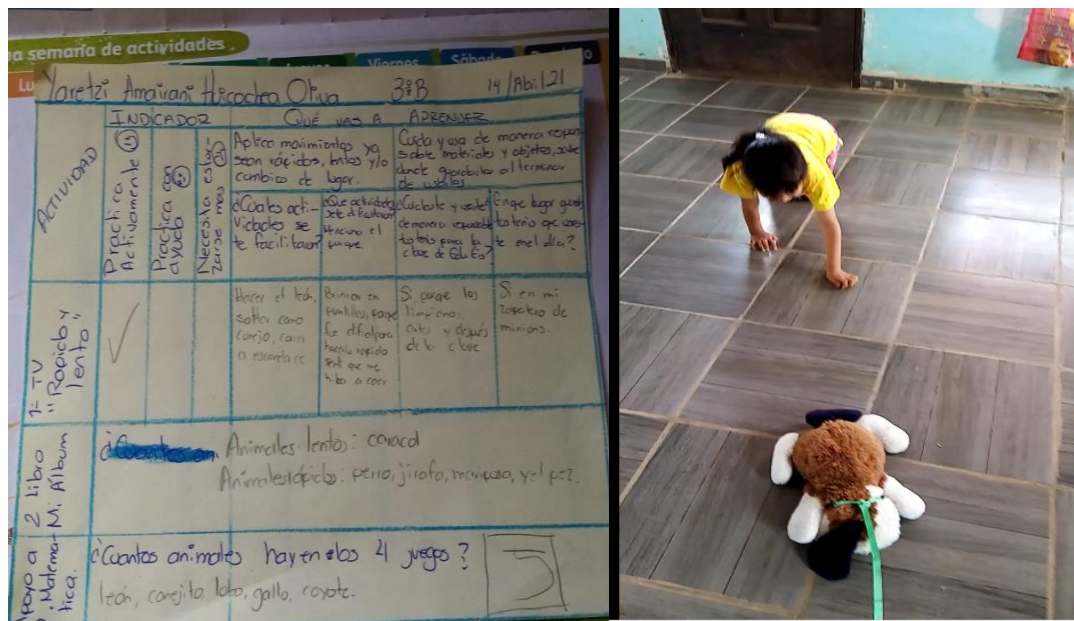 a semana de actividades
Lu
Viernes
Sábado
Yaretzi Amairani Hicochea Oliva 3ºB 14/Abril 21
INDICADOR QUÉ VAS A APRENDER
ACTIVIDAD
Practica Activamente
Practica con ayuda
Necesita
zarse mas
Aplico movimientos ya
sean rápidos, lentos y/o
cambios de lugar.
Cuida y usa de manera respon
sable materiales y objetos, sabe
donde guardarlos al terminar
de usarlos
¿Cuales acti-
vidades se
te facilitaron
¿Que actividades
se te dificultaron
el
porque.
de manera
tus tenis para la
clase de Edu. Fis?
¿En que lugar
tus tenis que
te en el día?
1- TV
"Rapido y
lento"
Hacer el león,
saltar como
conejo, correr
Brincar en
puntillas, porque
fue
hacerlo rapido
sentí que me
hiba a caer
Si porque los
limpiamos
antes y después
de la clase
Si en mi
zapatero de
minions.
2 libro
M. Álbum
Animales lentos: caracol
Animales rápidos: perro, jirafa, mariposa, y el pez.
Apoyo a
Matema-
tica.
¿Cuantos animales hay en los 4 juegos?
5
león, conejito, lobo, gallo, coyote.